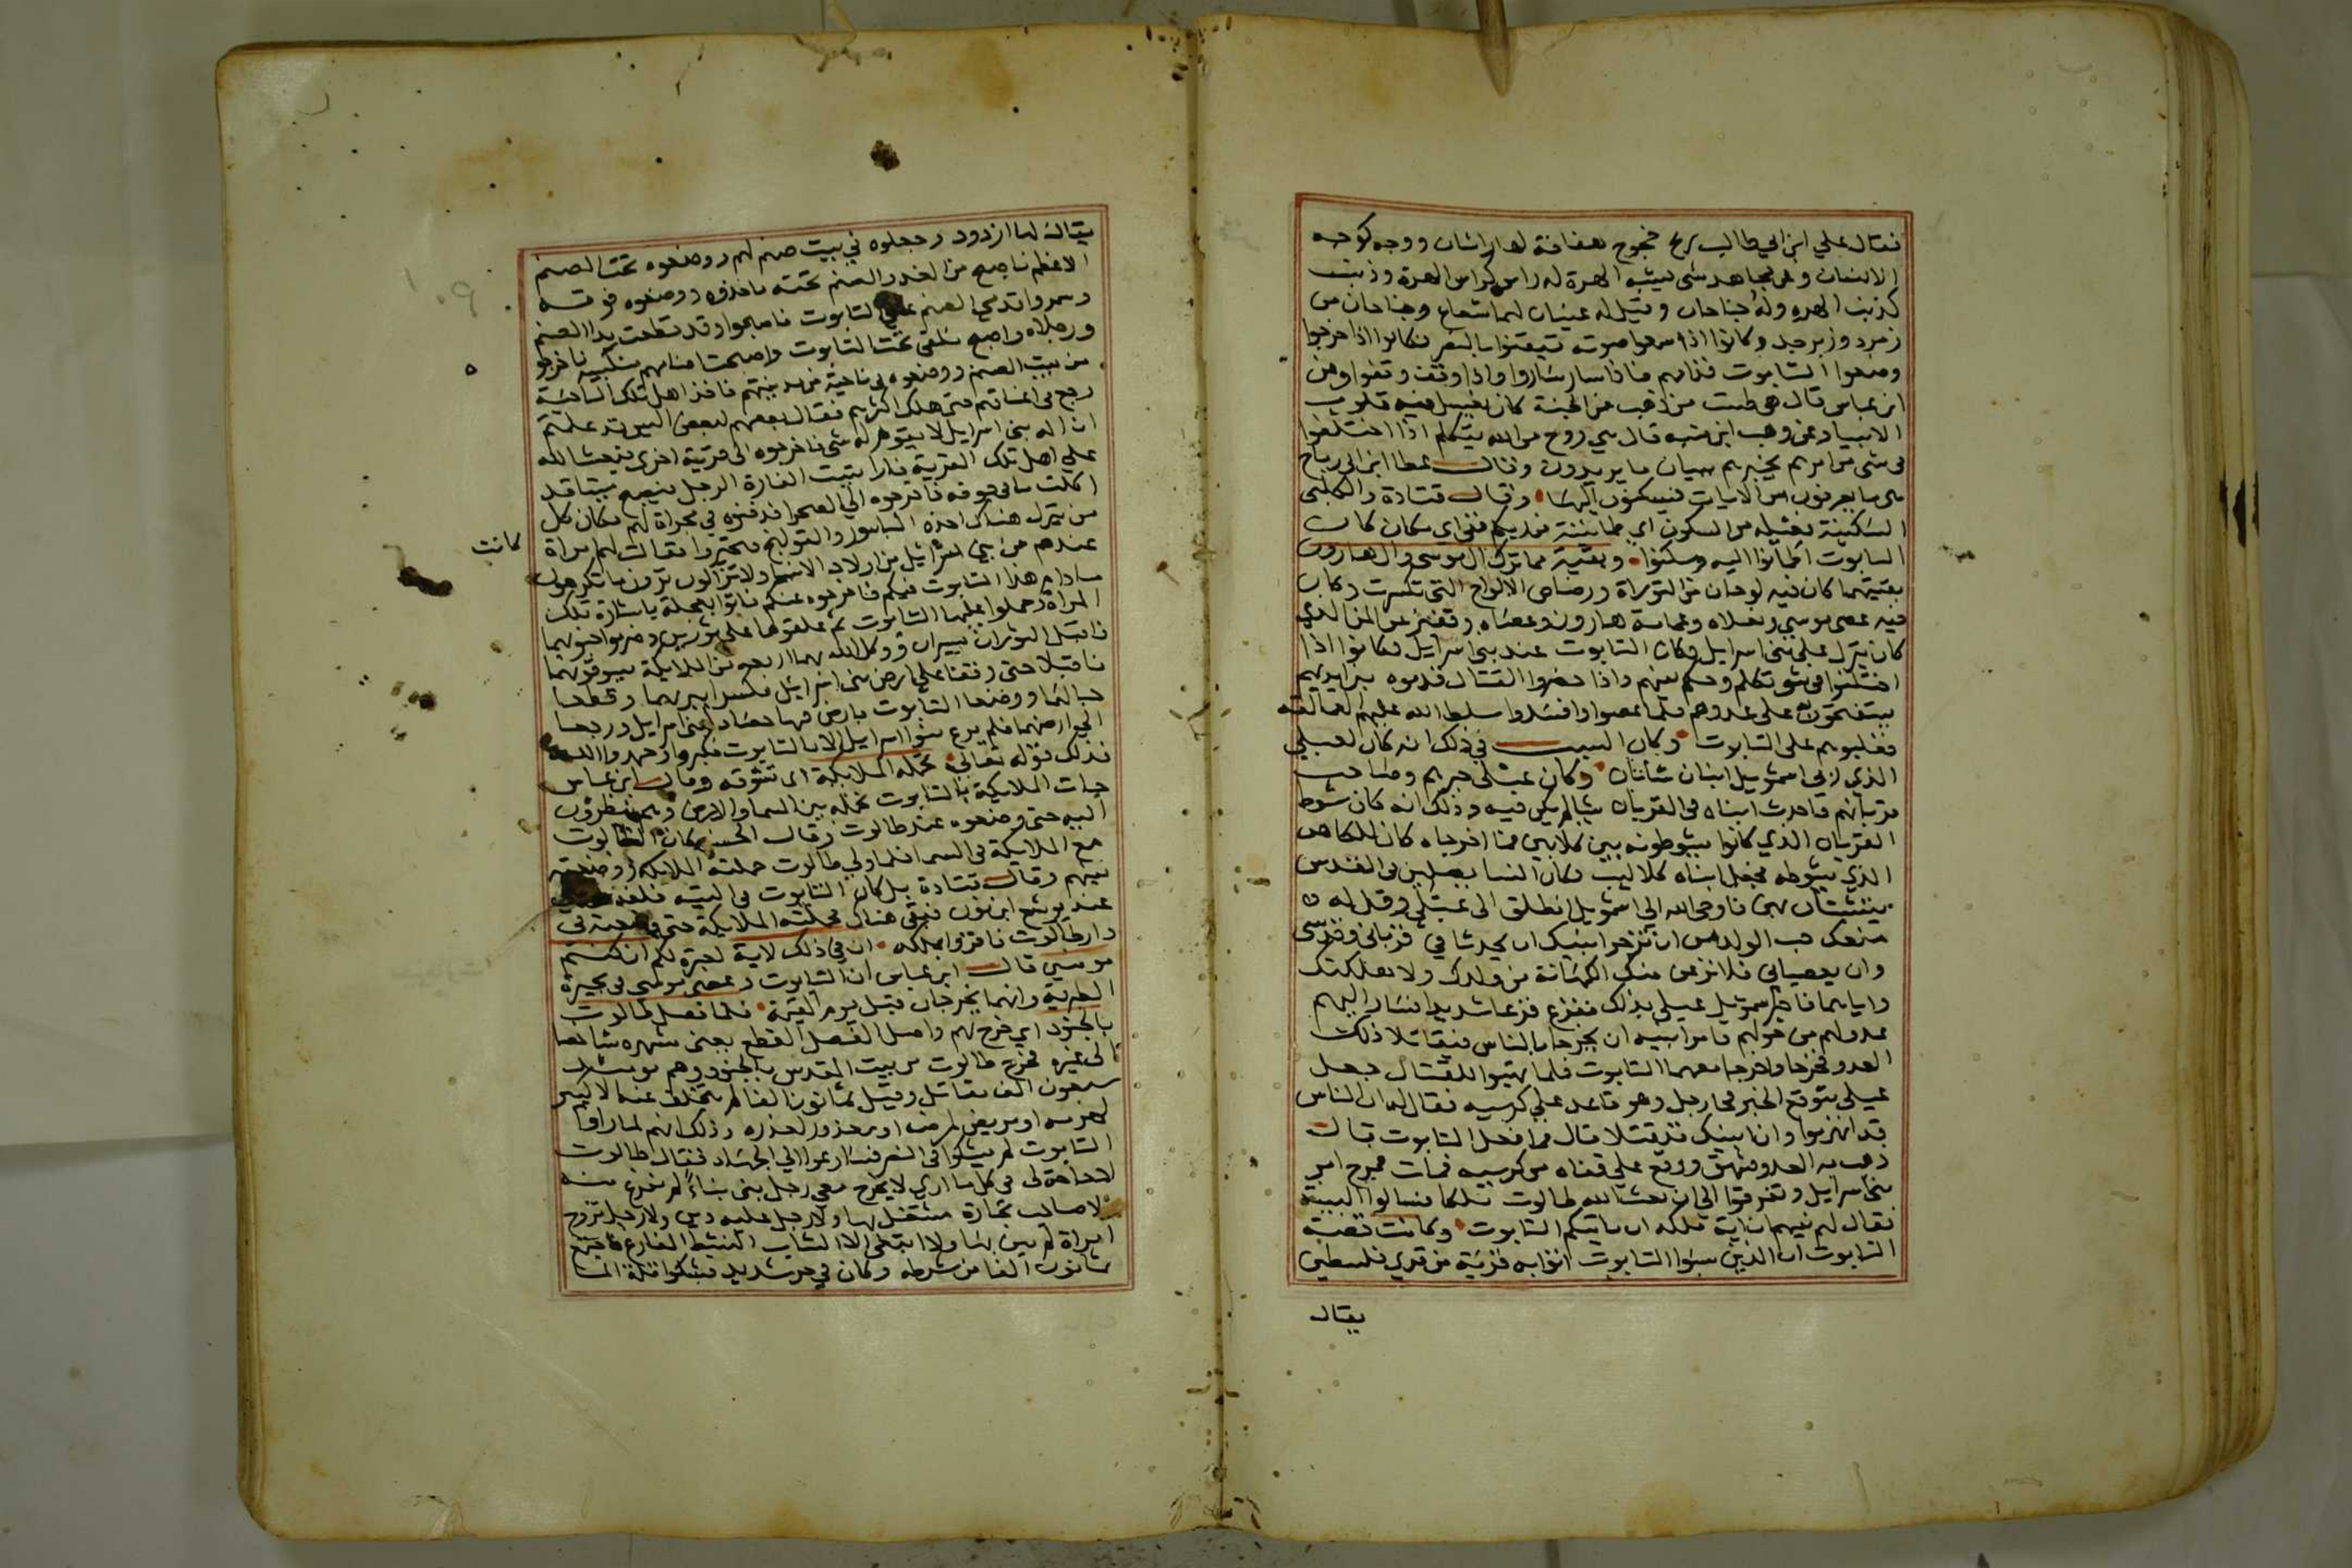 فقال علي ابن ابي طالب ريح خجوج هفافة لها راسان ووجه كوجه
الانسان وعن مجاهد شي يشبه الهرة له راس كراس الهرة وذنب
كذنب الهره وله جناحان وقيل له عينان لهما شعاع وجناحان من
زمرد وزبرجد وكانوا اذا سمعوا صوته تيقنوا بالنصر فكانوا اذا خرجوا
وضعوا التابوت قدامهم فاذا سار ساروا واذا وقف وقفوا وعن
ابن عباس قال هي طست من ذهب من الجنة كان يغسل فيه قلوب
الانبياء وعن وهب ابن منبه قال هي روح من الله يتكلم اذا اختلفوا
في شي من امرهم يخبرهم ببيان ما يريدون وقال عطا ابن ابي رباح
هي ما يعرفون من الايات فيسكنون اليها وقال قتادة والكلبي
السكينة فعيله من السكون اي طمانينة من ربكم ففي اي مكان كان
التابوت اطمانوا اليه وسكنوا وبقية مما ترك ال موسى وال هارون
بقيتهما كان فيه لوحان من التوراة ورضاض الالواح التي تكسرت وكان
فيه عصى موسى ونعلاه وعمامة هارون وعصاه وقفيز من المن الذي
كان ينزل على بني اسرايل وكان التابوت عند بني اسرايل فكانوا اذا
اختلفوا في شي تكلم وحكم بينهم واذا حضروا القتال قدموه بين ايديهم
يستفتحون به على عدوهم فلما عصوا وافسدوا سلط الله عليهم العمالقه
فغلبوهم على التابوت وكان السبب في ذلك انه كان لعيلى
الذي ربى اسمويل ابنان شابان وكان عيلى حبرهم وصاحب
قربانهم فاحدث ابناه في القربان شيا لم يكن فيه وذلك انه كان شوط
القربان الذي كانوا يشوطونه بين كلابين فما اخرجاه كان للكاهن
الذي يشوطه فجعل ابناه كلاليب وكان النسا يصلين في القدس
يتشبثان بهن فاوحى الله الى اشمويل انطلق الى عيلى وقل له
منعك حب الولد من ان تزجر ابنيك ان يحدثا في قرباني وقدسي
وان يعصياني فلانزعن منك الكهانة من ولدك ولاهلكنك
واياهما فاخبر سمويل عيلى بذلك ففزع فزعا شديدا فسار اليهم
عدو لهم من حولهم فامر ابنيه ان يخرجا بالناس فيقاتلا ذلك
العدو فخرجا واخرجا معهما التابوت فلما تهيوا للقتال جعل
عيلى يتوقع الخبر فجا رجل وهو قاعد على كرسيه فقال له ان الناس
قد انهزموا وان ابنيك قد قتلا قال فما فعل التابوت قال
ذهب به العدو فشهق ووقع على قفاه من كرسيه فمات فمرج امر
بني اسرايل وتفرقوا الى ان بعث الله طالوت ملكا فسالوا البينة
فقال لهم نبيهم ان اية ملكه ان ياتيكم التابوت وكانت قصة
التابوت ان الذين سبوا التابوت اتوا به قرية من قرى فلسطين
يقال
يقال لها ازدود وجعلوه في بيت صنم لهم ووضعوه تحت الصنم
الاعظم فاصبح من الغد والصنم تحته فاخذوه ووضعوه فوقه
وسمروا قدمي الصنم على التابوت فاصبحوا وقد قطعت يدا الصنم
ورجلاه واصبح ملقى تحت التابوت واصبحت اصنامهم منكسه فاخرجو
من بيت الصنم ووضعوه في ناحية من مدينتهم فاخذ اهل تلك الناحية
وجع في اعناقهم حتى هلك اكثرهم فقال بعضهم لبعض اليس قد علمتم
ان اله بني اسرايل لا يقوم له شي فاخرجوه الى قرية اخرى فبعث الله
على اهل تلك القرية فارا تبيت الفارة الرجل فيصبح ميتا قد
اكلت ما في جوفه فاخرجوه الى الصحرا فدفنوه في مخراة لهم فكان كل
من تبرز هناك اخذه الباسور والقولنج فتحيروا فقالت لهم امراة
كانت
عندهم من بني اسرائيل من اولاد الانبيا لا تزالون ترون ما تكرهون
مادام هذا التابوت فيكم فاخرجوه عنكم فاتوا بعجلة باشارة تلك
المراة وحملوا عليها التابوت ثم علقوها على ثورين وضربوا جنوبهما
فاقبل الثوران يسيران ووكل الله بهما اربعه من الملايكة يسوقونهما
فاقبلا حتى وقفا على ارض بني اسرائيل فكسرا نيرهما وقطعا
حبالهما ووضعا التابوت بارض فيها حصاد لبني اسرايل ورجعا
الى ارضهما فلم يرع بنوا اسرايل الا بالتابوت فكبروا وحمدوا الله
فذلك قوله تعالى تحمله الملايكة اي تسوقه وقال ابن عباس
جات الملايكة بالتابوت تحمله بين السما والارض وهم ينظرون
اليه حتى وضعوه عند طالوت وقال الحسن كان التابوت
مع الملايكة في السما فلما ولي طالوت حملته الملايكة ووضعته
بينهم وقال قتادة بل كان التابوت في التيه خلفه
عند يوشع ابن نون فبقي هناك فحملته الملايكة حتى وضعته في
دار طالوت فاقروا بملكه ان في ذلك لاية لعبرة لكم ان كنتم
مومنين قال ابن عباس ان التابوت وعصى موسى في بحيرة
الطبرية وانهما يخرجان قبل يوم القيمة فلما فصل طالوت
بالجنود اي خرج بهم واصل الفصل القطع يعني شهره شاخصا
الى غيره فخرج طالوت من بيت المقدس بالجنود وهم يوميذ
سبعون الف مقاتل وقيل ثمانون الفا لم يتخلف عنه الا كبير
لهرمه او مريض لمرضه او معذور لعذره وذلك انهم لما راوا
التابوت لم يشكوا في النصر فسارعوا الى الجهاد فقال طالوت
لا حاجة لي في كل ما ارى لا يخرج معي رجل بنى بناء لم يفرغ منه
ولا صاحب تجارة مشتغل بها ولا رجل عليه دين ولا رجل تزوج
امراة لم يبن بها ولا ابتغي الا الشاب النشيط الفارغ فاجتمع
ثمانون الفا من شرطه وكان في حر شديد فشكوا قلة الما